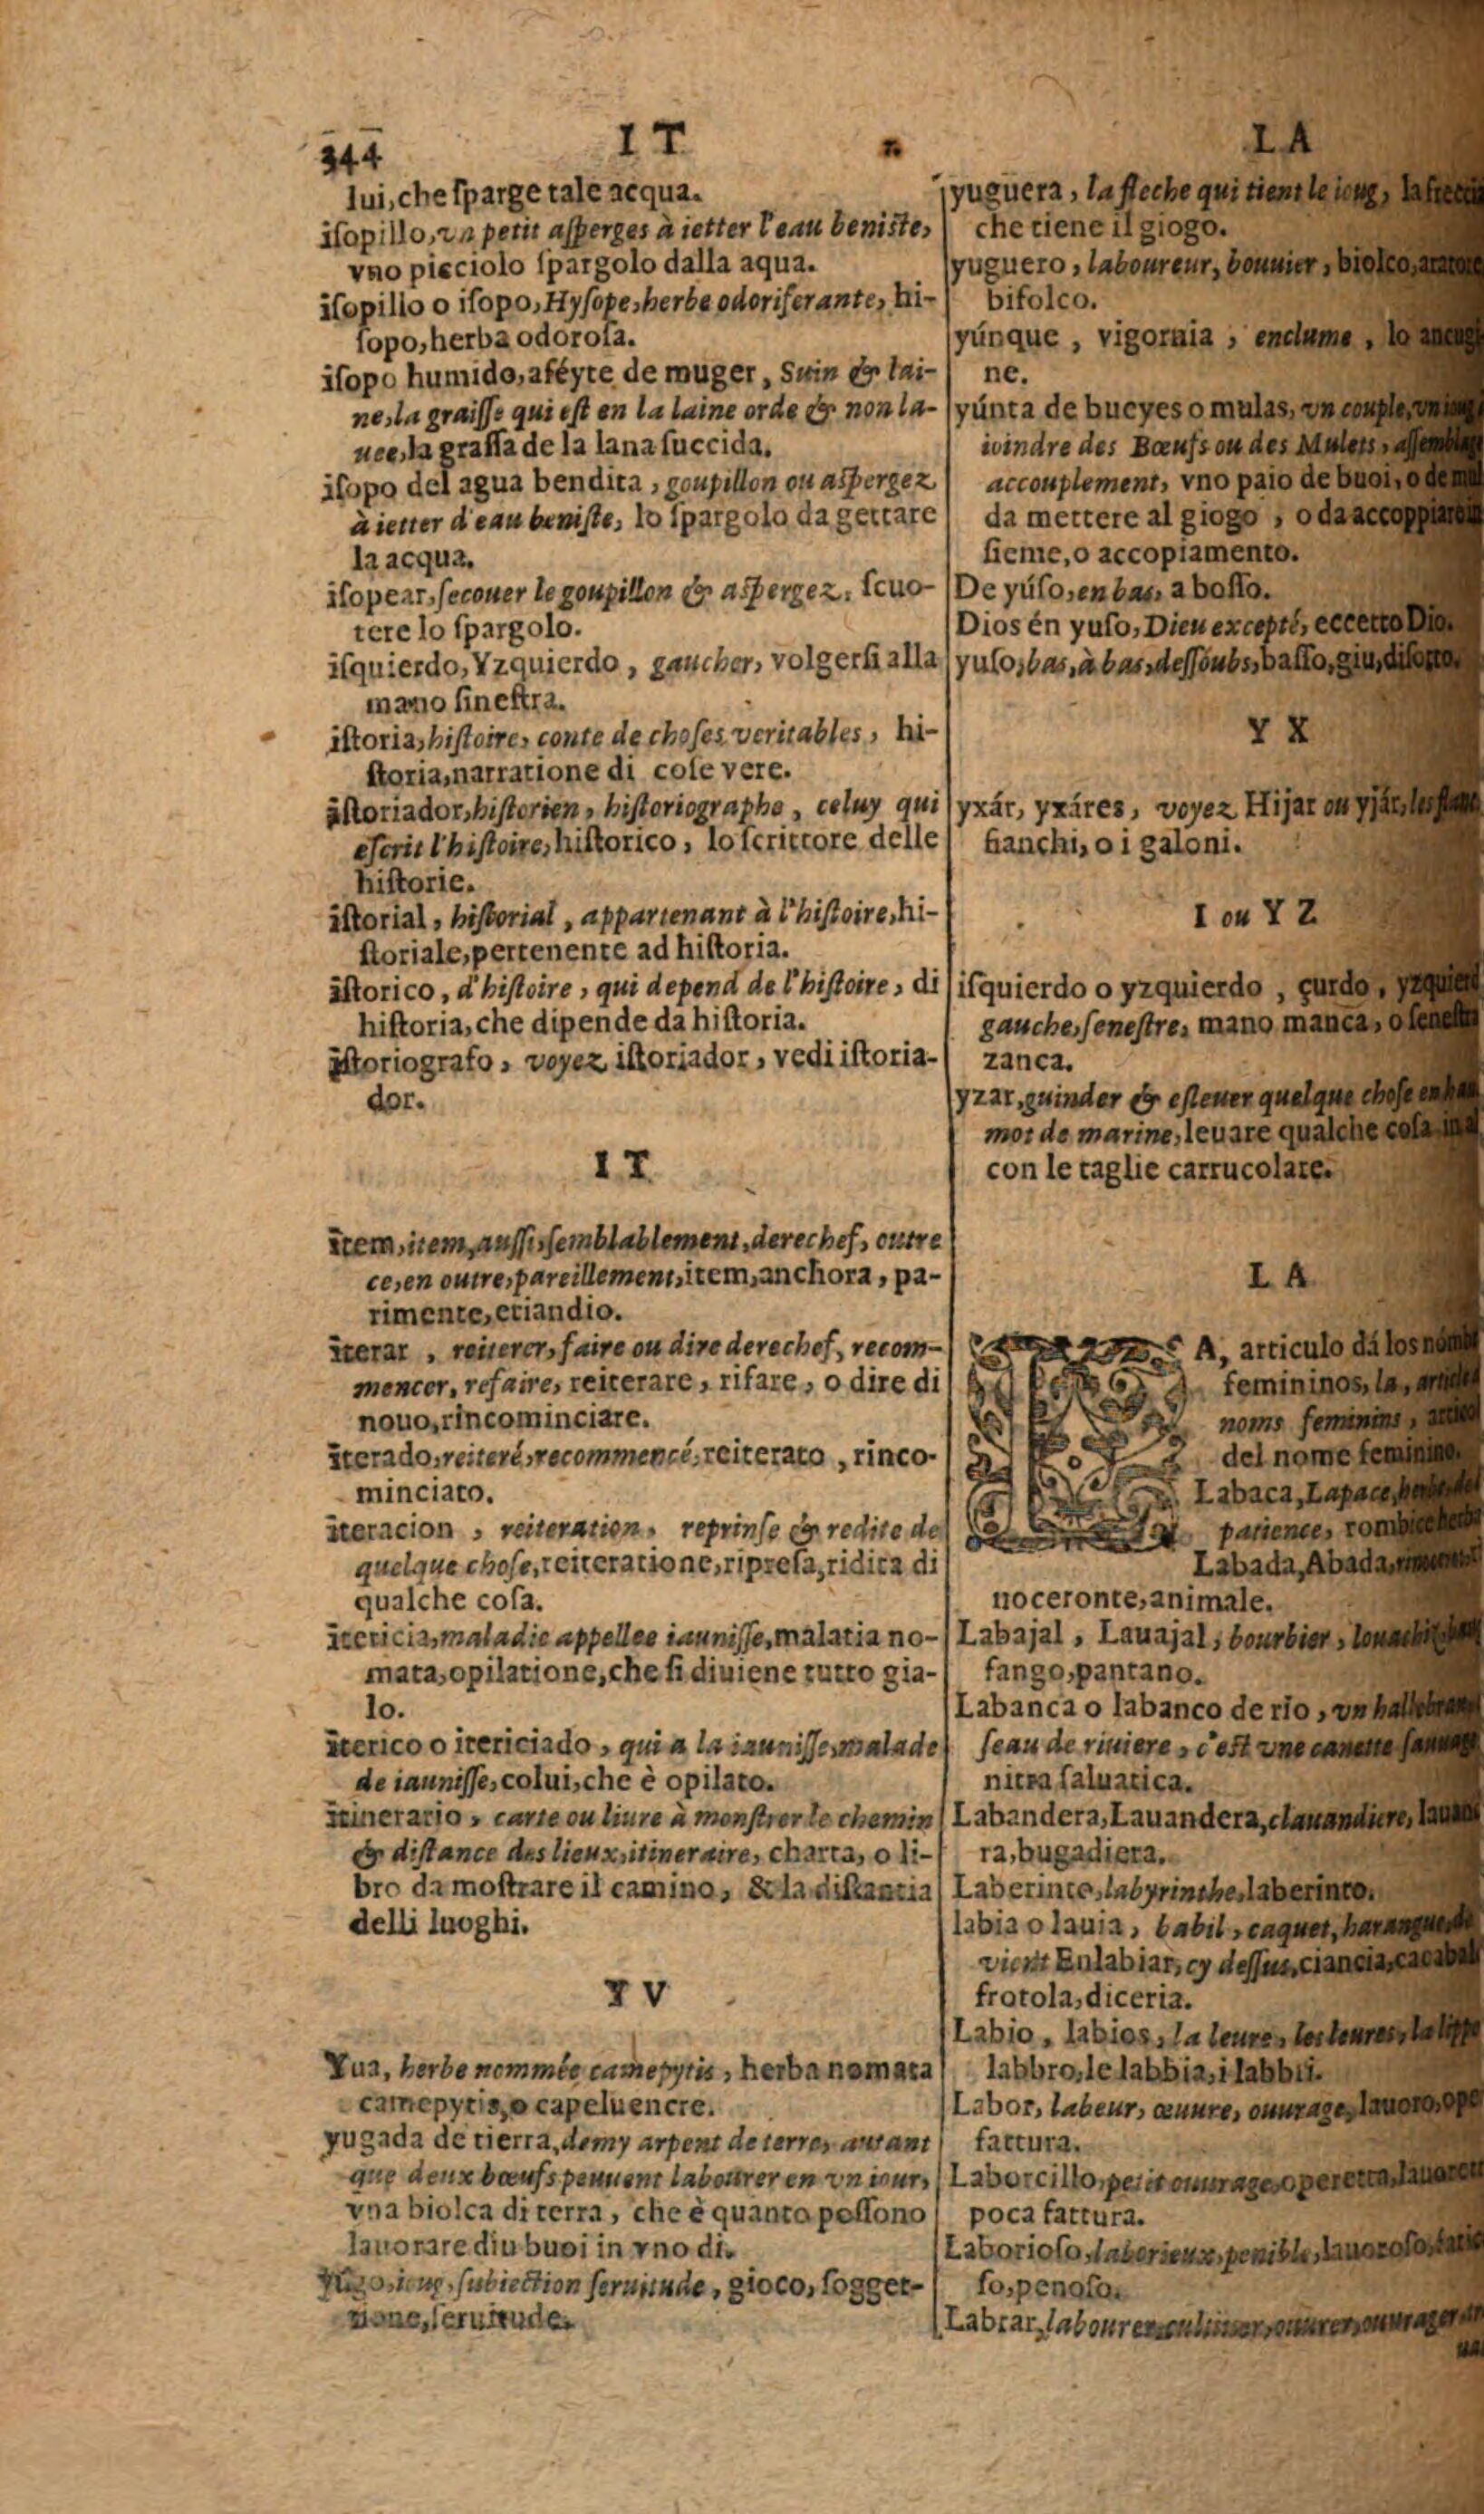 344
I T
lui,che ſparge tale acqua.
iſopillo,vn petit aſperges à ietter l'eau beniſte,
vno picciolo ſpargolo dalla aqua.
iſopillo o iſopo,Hyſope,herbe odoriferante, hi-
ſopo,herba odoroſa.
iſopo humido,aféyte de muger, Suin & lai-
ne,la graiſſe qui eſt en la laine orde & non la-
uee,la graſſa de la lana ſuccida.
iſopo del agua bendita, goupillon ou aſpergez
à ietter d'eau beniſte, lo ſpargolo da gettare
la acqua.
iſopear,ſecouer le goupillon & aſpergez, ſcuo-
tere lo ſpargolo.
iſquierdo,Yzquierdo, gaucher, volgerſi alla
mano ſineſtra.
iſtoria,hiſtoire, conte de choſes veritables, hi-
ſtoria,narratione di coſe vere.
iſtoriador,hiſtorien, hiſtoriographe, celuy qui
eſcrit l'hiſtoire,hiſtorico, lo ſcrittore delle
hiſtorie.
iſtorial, hiſtorial, appartenant à l'hiſtoire,hi-
ſtoriale,pertenente ad hiſtoria.
iſtorico, d'hiſtoire, qui depend de l'hiſtoire, di
hiſtoria,che dipende da hiſtoria.
iſtoriografo, voyez iſtoriador, vedi iſtoria-
dor.
I T
item,item,auſſi,ſemblablement,derechef, outre
ce,en outre,pareillement,item,anchora, pa-
rimente,etiandio.
iterar, reiterer,faire ou dire derechef, recom-
mencer, refaire, reiterare, rifare, o dire di
nouo,rincominciare.
iterado,reiteré,recommencé,reiterato, rinco-
minciato.
iteracion, reiteration, reprinſe & redite de
quelque choſe,reiteratione,ripreſa,ridita di
qualche coſa.
itericia,maladie appellee iauniſſe,malatia no-
mata,opilatione,che ſi diuiene tutto gia-
lo.
iterico o itericiado, qui a la iauniſſe,malade
de iauniſſe,colui,che è opilato.
itinerario, carte ou liure à monſtrer le chemin
& diſtance des lieux,itineraire, charta, o li-
bro da moſtrare il camino, & la diſtantia
delli luoghi.
Y V
Yua, herbe nommée camepytis, herba nomata
camepytis,o capeluenere.
yugada de tierra,demy arpent de terre, autant
que deux bœufs peuuent labourer en vn iour,
vna biolca di terra, che è quanto poſſono
lauorare diu buoi in vno di.
Yugo,ioug,ſubiection ſeruitude, gioco, ſogget-
tione,ſeruitude.
L A
yuguera, la fleche qui tient le ioug, la freccia
che tiene il giogo.
yuguero, laboureur, bouuier, biolco,aratore
bifolco.
yúnque, vigornia, enclume, lo ancugi
ne.
yúnta de bueyes o mulas, vn couple,vn
ioindre des Bœufs ou des Mulets, aſſemblage
accouplement, vno paio de buoi, o de mul
da mettere al giogo, o da accoppiare in
ſieme,o accopiamento.
De yúſo,en bas, a boſſo.
Dios én yuſo,Dieu excepté, eccetto Dio.
yuſo,bas,à bas,deſſoubs,baſſo,giu,diſotto.
Y X
yxár, yxáres, voyez Hijar ou yjár,les
fianchi, o i galoni.
I ou Y Z
iſquierdo o yzquierdo, çurdo, yzquierd
gauche,ſeneſtre, mano manca, o ſeneſtra
zanca.
yzar,guinder & eſleuer quelque choſe en
mot de marine,leuare qualche coſa
con le taglie carrucolare.
L A
A, articulo dá los
femininos, la, article
noms feminins,
del nome feminino.
Labaca,Lapace,
patience, rombice
Labada,Abada,
noceronte,animale.
Labajal, Lauajal, bourbier,
fango,pantano.
Labanca o labanco de rio, vn
ſeau de riuiere, c'eſt vne canette ſauuage
nitra ſaluatica.
Labandera,Lauandera,clauandiere,
ra,bugadiera.
Laberinto,labyrinthe,laberinto.
labia o lauia, babil, caquet, harangue,
vient Enlabiar, cy deſſus,ciancia,
frotola,diceria.
Labio, labios, la leure, les leures, la lippe
labbro,le labbia,i labbri.
Labor, labeur, œuure, ouurage, lauoro,
fattura.
Laborcillo,petit ouurage,operetta,
poca fattura.
Laborioſo,laborieux,penible,
ſo,penoſo.
Labrar,labourer,